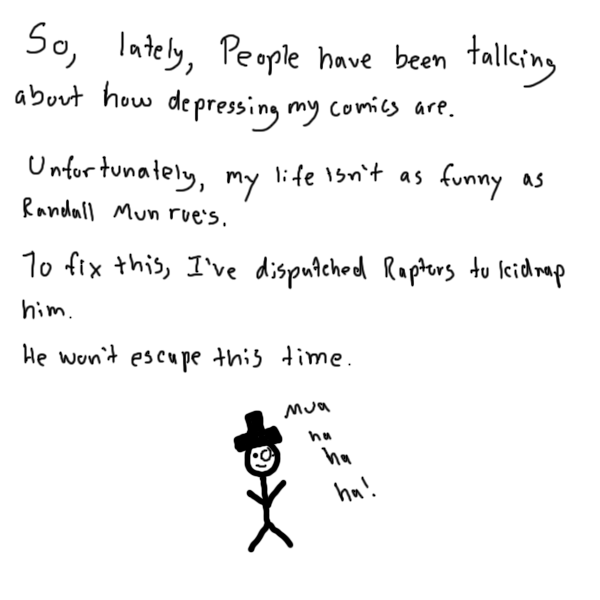 So, lately, People have been talking
about how depressing my comics are.
Unfortunately, my life isn't as funny as
Randall Munroe's.
To fix this, I've dispatched Raptors to kidnap
him.
He won't escape this time.
Mua
ha
ha
ha!